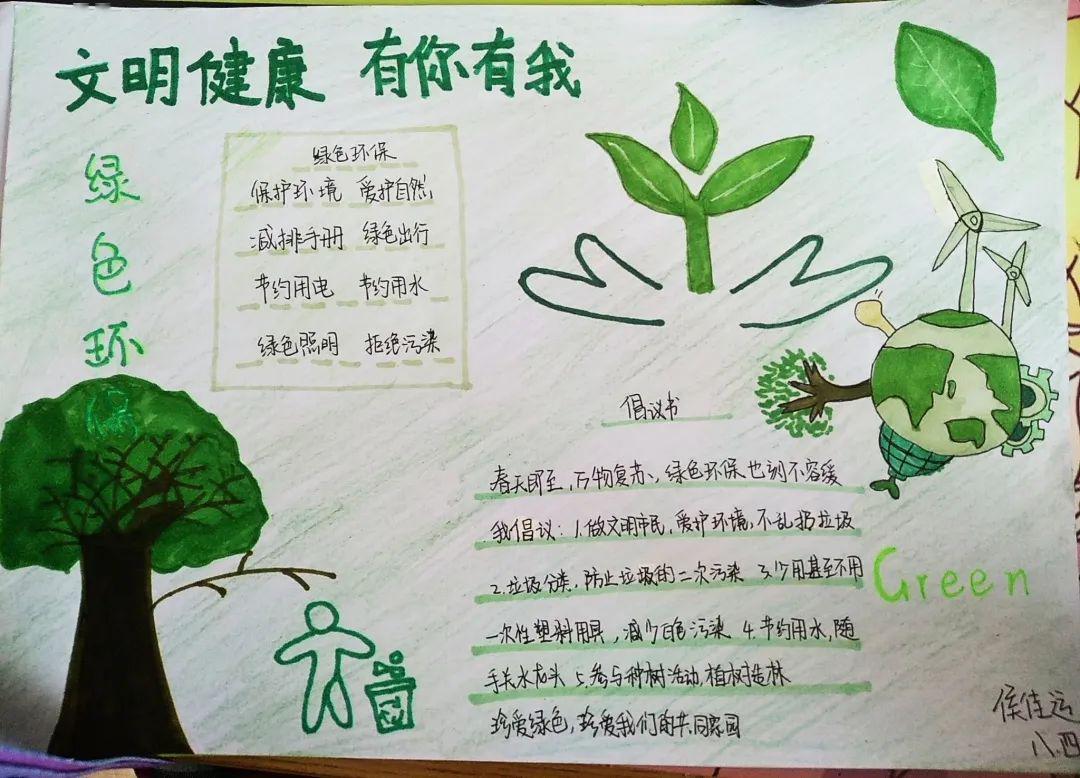 文明健康 有你有我
绿色环保
绿色环保
保护环境 爱护自然
减排手册 绿色出行
节约用电 节约用水
绿色照明 拒绝污染
倡议书
春天即至,万物复苏、绿色环保也刻不容缓
我倡议:1.做文明市民,爱护环境,不乱扔垃圾
2.垃圾分类,防止垃圾的二次污染 3.少用甚至不用
一次性塑料用具,减少白色污染 4.节约用水,随
手关水龙头 5.参与种树活动,植树造林
珍爱绿色,珍爱我们的共同家园
Green
侯佳运
八.四